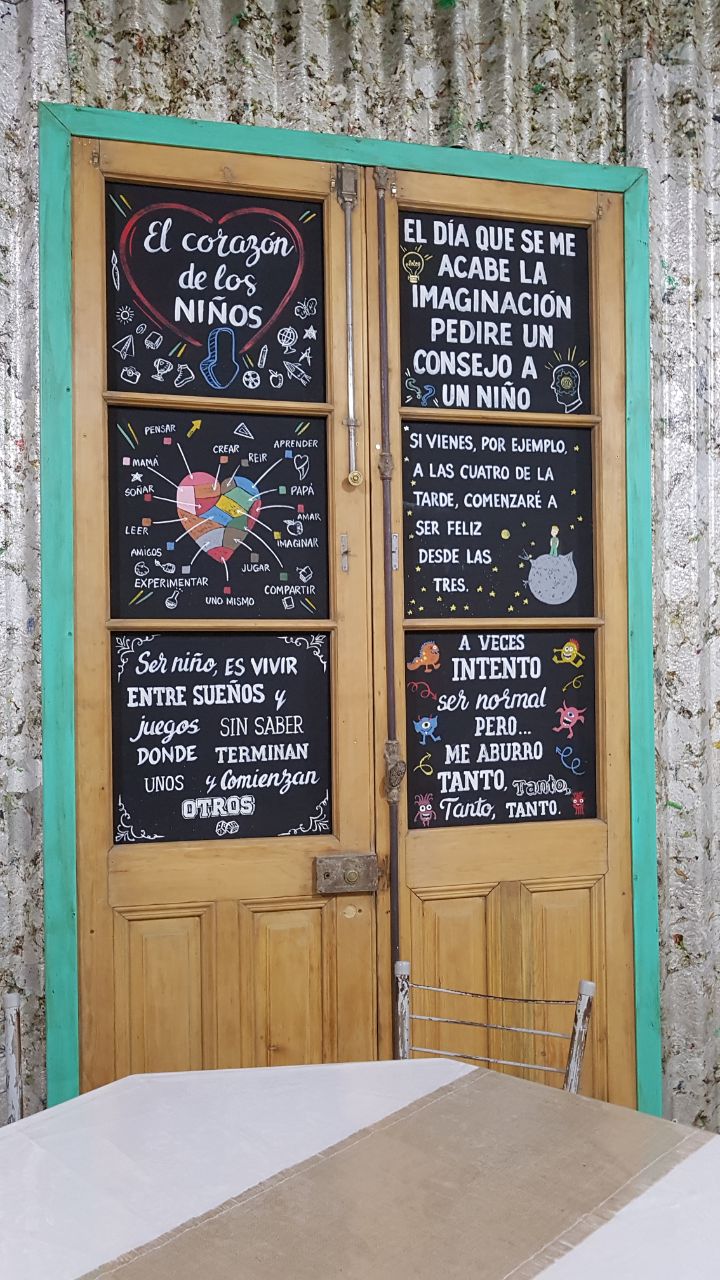 El corazón
de los
NIÑOS
PENSAR
CREAR
REIR
APRENDER
MAMÁ
SOÑAR
PAPÁ
LEER
AMAR
IMAGINAR
AMIGOS
JUGAR
EXPERIMENTAR
COMPARTIR
UNO MISMO
Ser niño, ES VIVIR
ENTRE SUEÑOS y
juegos SIN SABER
DONDE TERMINAN
UNOS y Comienzan
OTROS
EL DÍA QUE SE ME
ACABE LA
IMAGINACIÓN
PEDIRE UN
CONSEJO A
UN NIÑO
SI VIENES, POR EJEMPLO,
A LAS CUATRO DE LA
TARDE, COMENZARÉ A
SER FELIZ
DESDE LAS
TRES.
A VECES
INTENTO
ser normal
PERO...
ME ABURRO
TANTO, Tanto,
Tanto, TANTO.